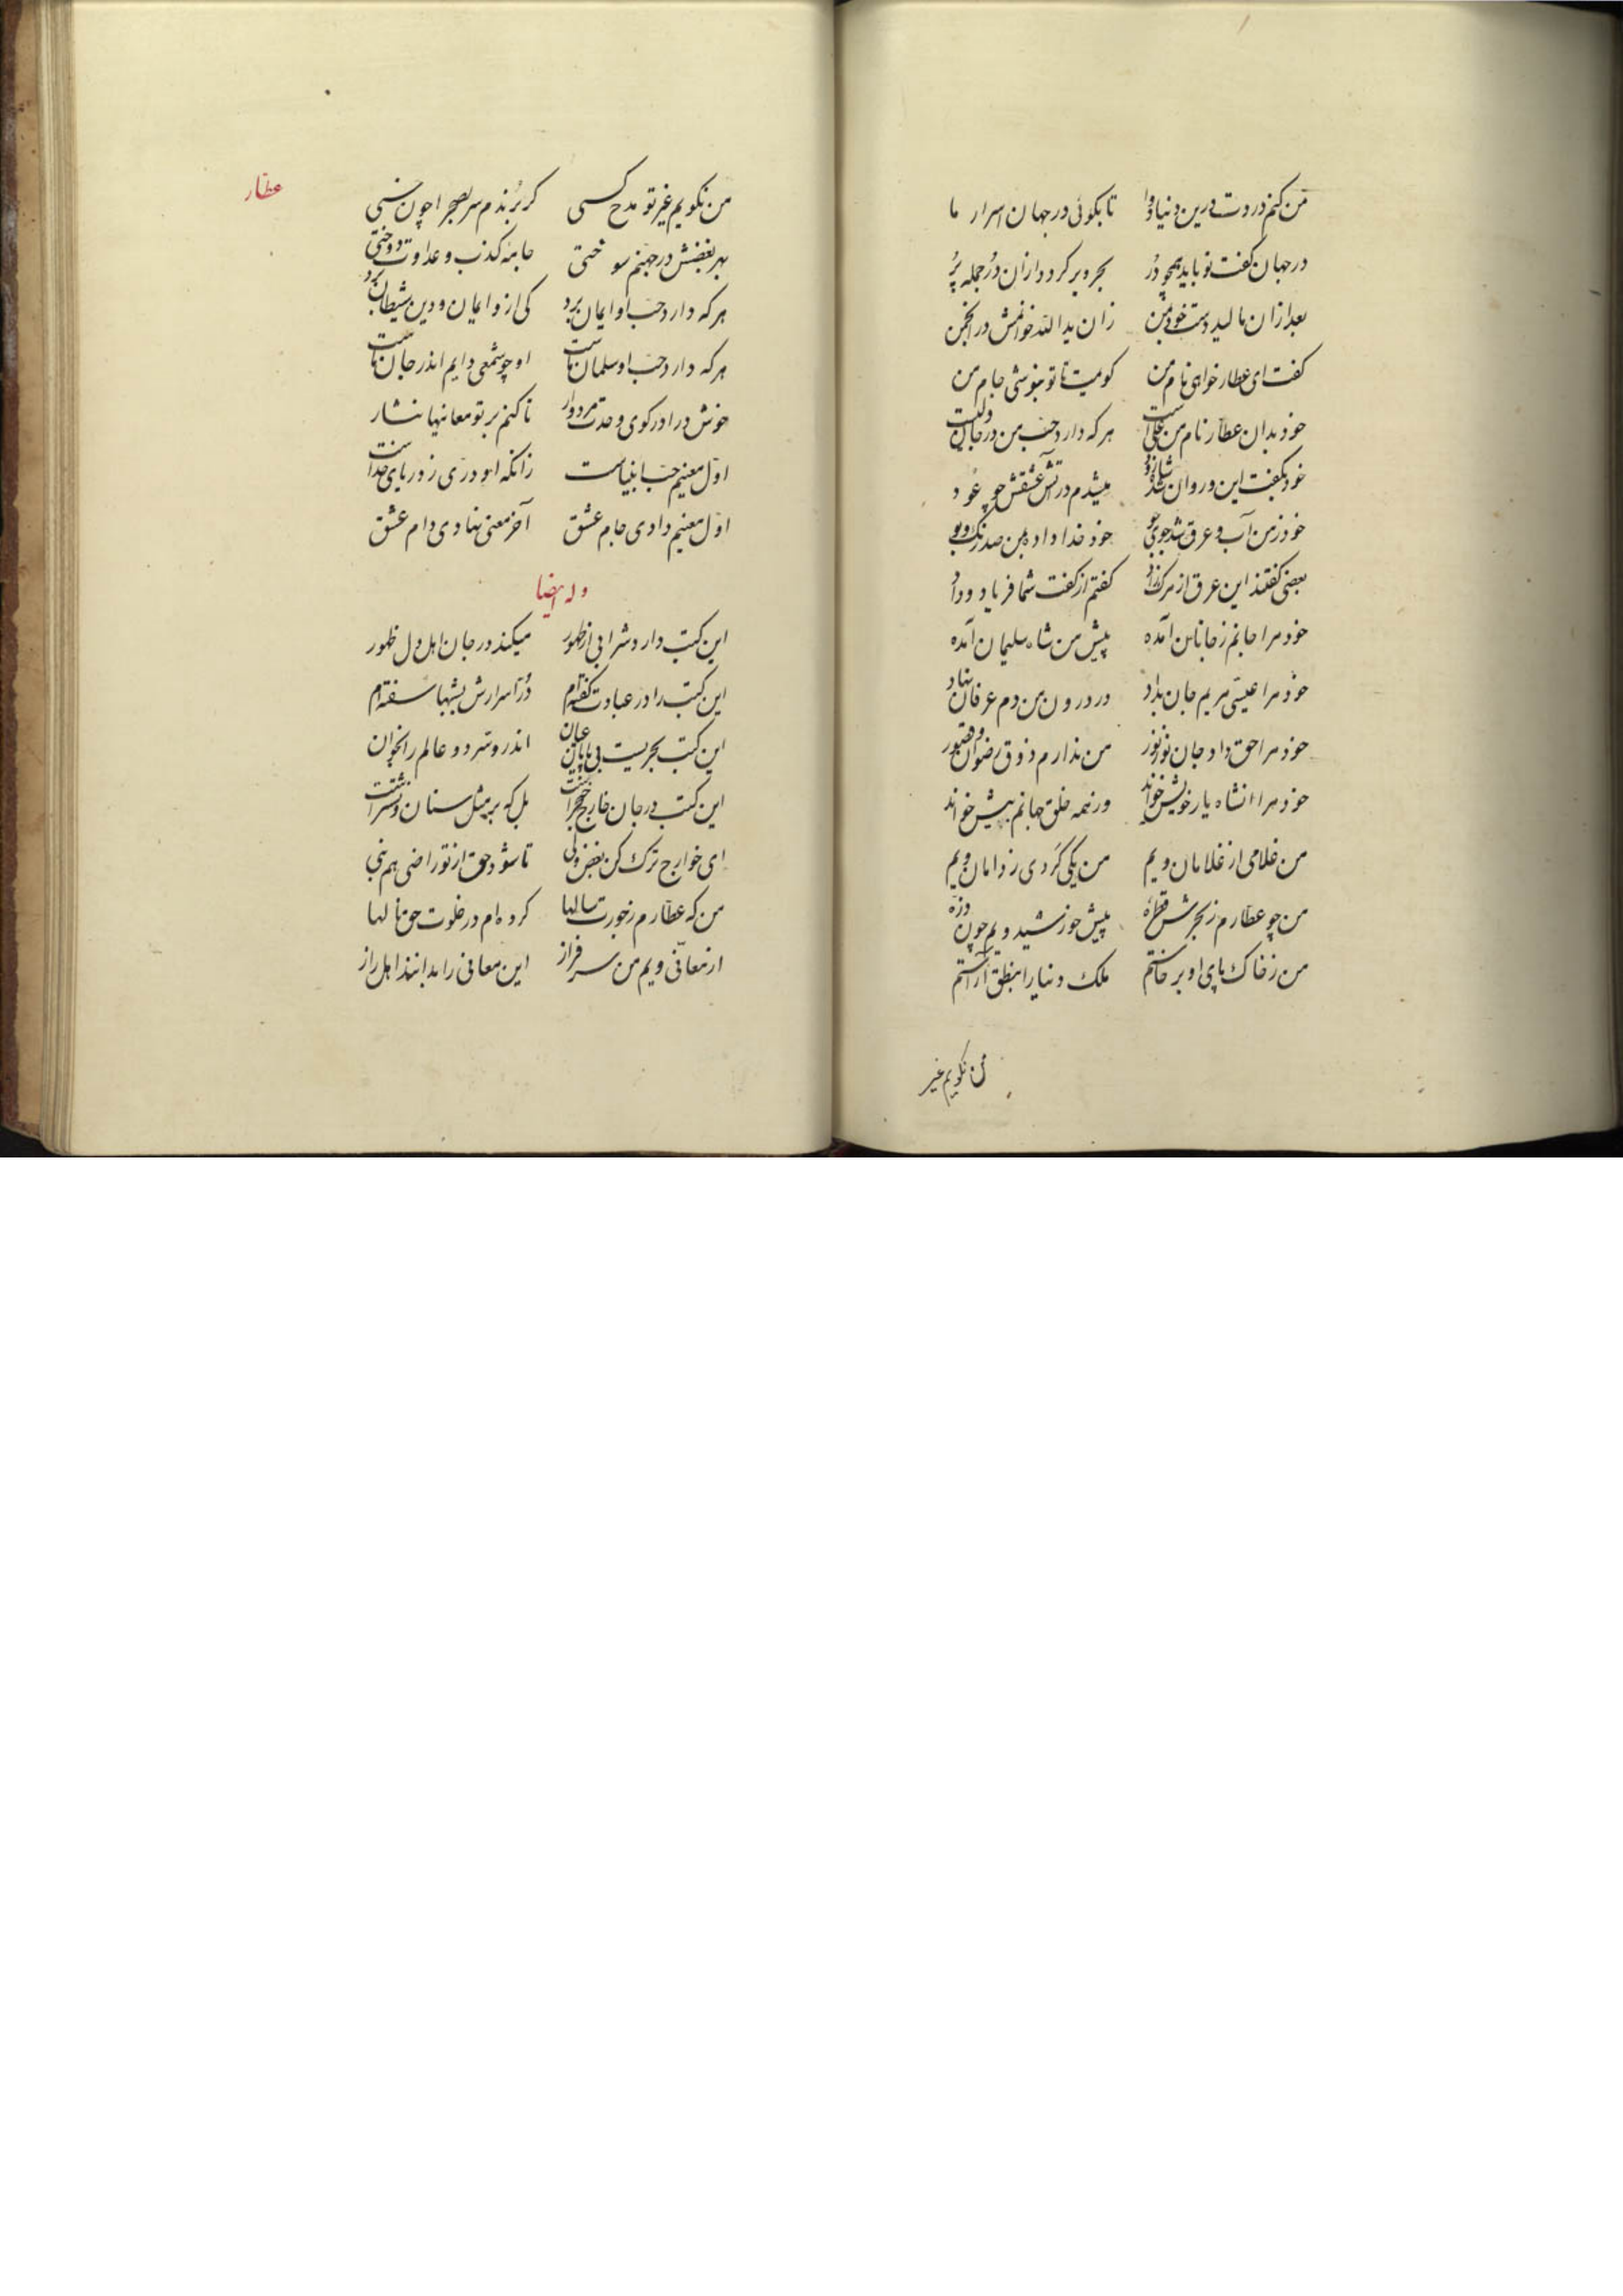 من کنم دردت درین دنیا دوا تا بکوئی در جهان اسرار ما
در جهان کفت تو باید همچو در بحر و بر کردد ازان در جمله پر
بعد ازان مالید دست خود بمن زان ید الله خوانمش در انجمن
کفت ای عطار خواهی نام من کویمت تا تو بنوشی جام من
خود بدان عطار نام من علی است هر که دارد حب من در جان ولیست
خود بکفت این و روان شد میشدم در آتش عشقش چو عود
خود ز من آب و عرق شد جوی جو خود خدا داده بمن صد رنک و بو
بعضی کفتند این عرق از مرک زاد کفتم از کفت شما فریاد و داد
خود مرا جانم ز جانان آمده پیش من شاه سلیمان آمده
خود مرا عیسی مریم جان بداد در درون من دم عرفان نهاد
خود مرا حق داد جان نور نور من ندارم ذوق رضوان و قصور
خود مرا انشاه یار خویش خواند ور نمه خلق جهانم بیش خواند
من غلامی از غلامان ویم من یکی کردی ز دامان ویم
من چو عطارم ز بحرش قطره پیش خورشید ویم چون ذره
من ز خاک پای او بر خاستم ملک دنیا را بنطق آراستم
من نکویم غیر
عطار
من نکویم غیر تو مدح کسی کر برندم سر بصحرا چون خسی
بهر بغضش در جهنم سوختی جامه کذب و عداوت دوختی
هر که دارد حب او ایمان برد کی ازو ایمان و دین شیطان برد
هر که دارد حب او سلمان ماست او چو شمعی دایم اندر جان ماست
خوش درا در کوی وحدت مردوار تا کنم بر تو معانیها نثار
اول معنیم حب انبیاست زانکه او دری ز دریای خداست
اول معنیم دادی جام عشق آخر معنی نهادی دام عشق
وله ایضا
این کتب دارد شرابی از طهور میکند در جان اهل دل ظهور
این کتب را در عبادت کفته‌ام در اسرارش بشبها سفته‌ام
این کتب بحریست بی پایان عیان اندرو سر دو عالم را بخوان
این کتب در جان خارج خنجر است بل که بر مثل سنان و نشتر است
ای خوارج ترک کن بغض ولی تا شود حق از تو راضی هم نبی
من که عطارم ز جورت سالها کرده‌ام در خلوت حق نالها
از معانی ویم من سرفراز این معانی را بدانند اهل راز